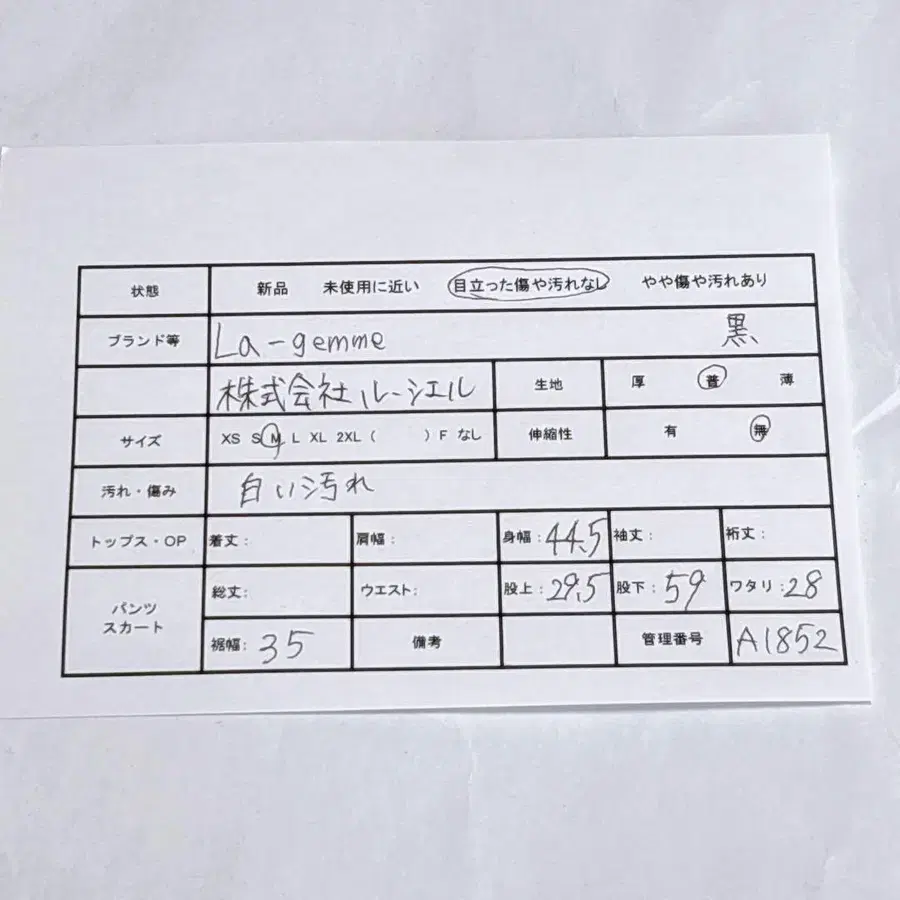 状態 新品 未使用に近い 目立った傷や汚れなし やや傷や汚れあり
ブランド等 La-gemme 黒
株式会社ルーシエル 生地 厚 普 薄
サイズ XS S M L XL 2XL ( ) F なし 伸縮性 有 無
汚れ・傷み 白い汚れ
トップス・OP 着丈: 肩幅: 身幅: 44.5 袖丈: 裄丈:
パンツ スカート 総丈: ウエスト: 股上: 29.5 股下: 59 ワタリ: 28
裾幅: 35 備考 管理番号 A1852